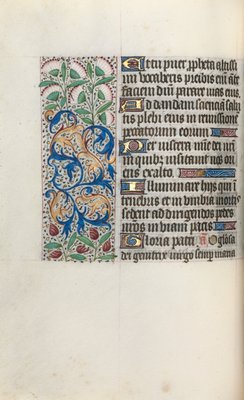 Et tu puer propheta altissi
mi vocaberis preibis enim ante
faciem dni parare vias eius.
Ad dandam scienciam salu
tis plebi eius in remissione
peccatorum eorum
Per viscera mie dei nri
in quibz visitavit nos ori
ens ex alto.
Illuminare hijs qui in
tenebris et in umbra mortis
sedent ad dirigendos pedes
nros in viam pacis
Gloria patri a O gloriosa
dei genitrix virgo semp maria